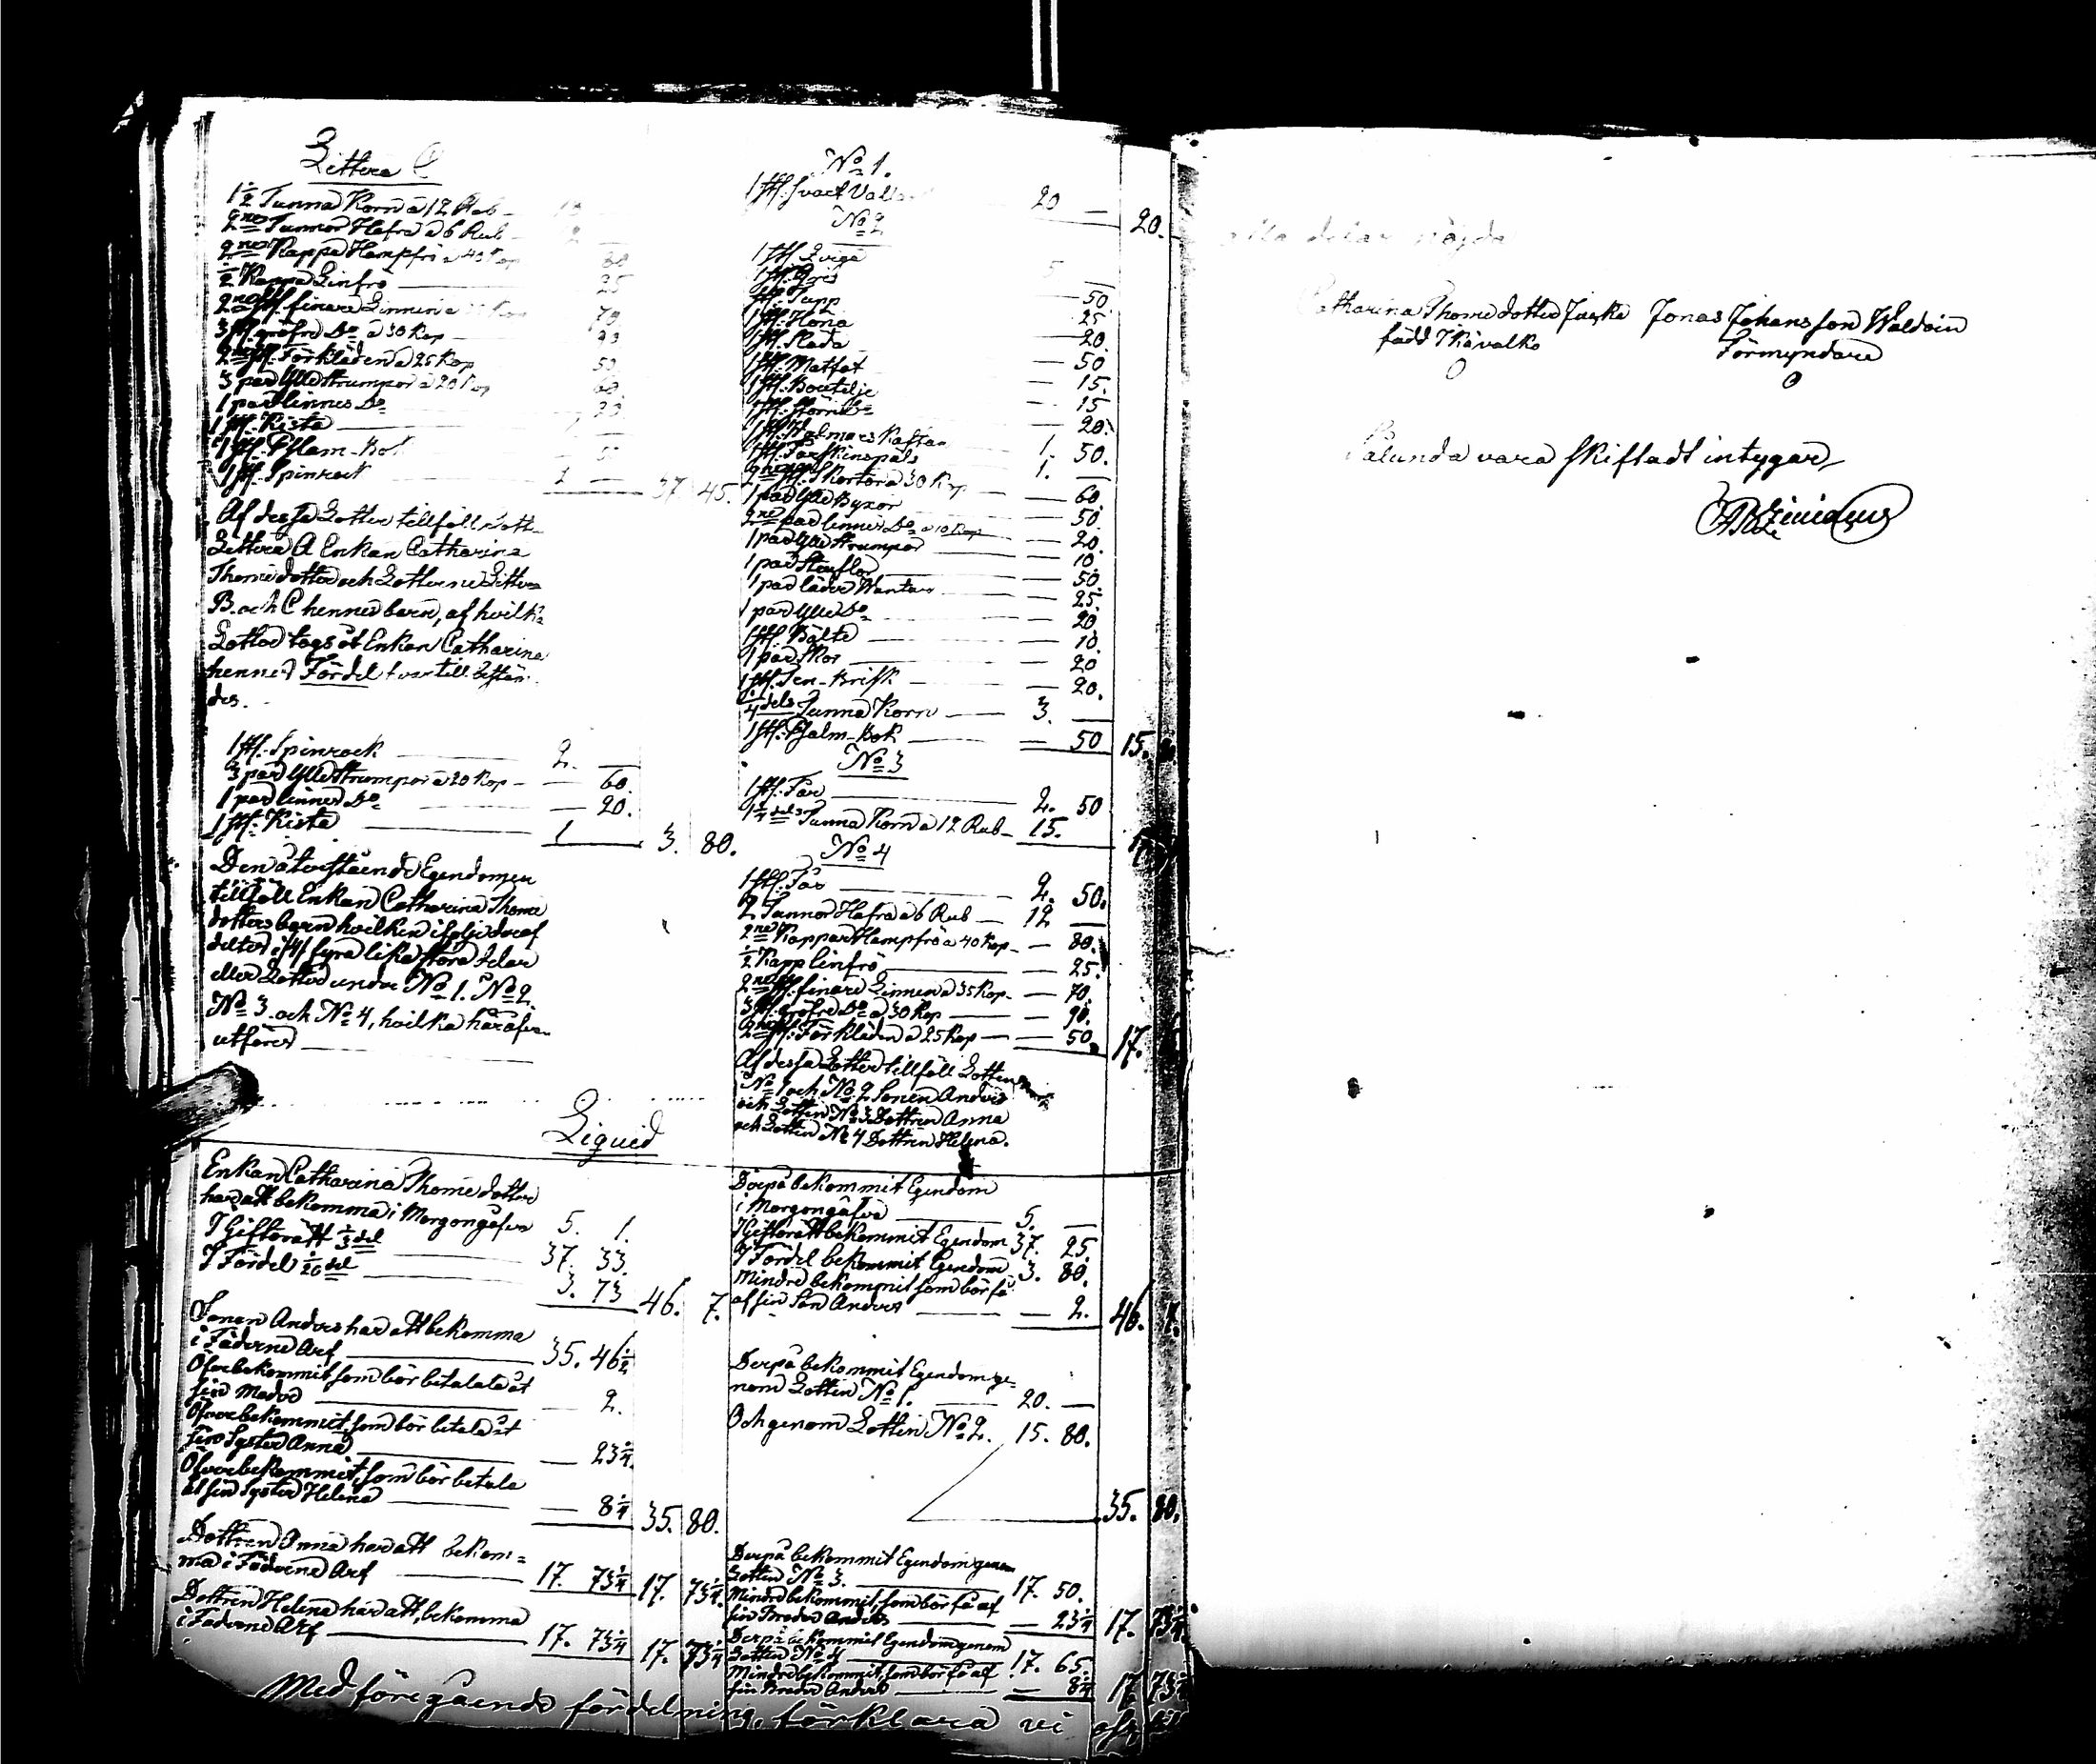 Littera C
1½ Tunna Korn a 12 Rub
2ne Tunnor Hafra a 6 Rub
2ne Kappa Hampfrö a 40 Kop
½ Kappa Linfrö — 25
2ne st. finare Linnen a
3 st. gröfre Do a 30 Kop — 90
2ne st. Förkläden a 25 Kop 50
3 par Ylle strumpor a 20 Kop 60.
1 par linnes Do — 20.
1 st. Kista
1 st. Psalm-Bok
1 st. Spinrock 37 45.
Af dessa Lotter tillföll Lott
Littera A Enkan Catharina
Thomedotter och Lotterne Littera
B. och C hennes barn, af hvilka
Lotter togs åt Enkan Catharina
hennes Fördel
des.
1 st. Spinrock — 2. —
3 par Ylle strumpor a 20 Kop — 60.
1 par linnes Do — 20.
1 st. Kista 1 — 3. 80.
Den återstående Egendomen
tillföll Enkan Catharina Thome
dotters barn hvilken i följe deraf
deltes i /4/ fyra lika stora delar
eller Lotter under No 1. No 2.
No 3. och No 4, hvilka här
utföres
No 1.
1 st. svart 20 — 20.
No 2
1 st. Qviga 5 —
1 st. Gris — 50.
1 st. Tupp — 25
1 st. Höna — 20.
1 st. — 50
1 st. Matfat — 15.
1 st. Bouteilje — 15
1 st. större Do — 20.
1 st. Kaftan 1. 50.
1 st. Fårskinspäls 1. —
2ne st. Skortor a 30 Kop — 60.
1 par Ylle Byxor — 50.
2ne par linnes Do a 10 Kop — 20.
1 par Ylle strumpor — 10.
1 par Stöflor — 50.
1 par läder Wantar — 25.
1 par Ylle Do — 20
1 st. Bälte — 10.
1 par Skor — 20
1 st. — 20.
¼ dels Tunna Korn — 3. —
1 st. Psalm-Bok — 50 15.
No 3
1 st. Får — 2. 50
1¼ dels Tunna Korn a 12 Rub — 15.
No 4
1 st. Får — 2. 50.
2 Tunnor Hafra a 6 Rub — 12 —
2ne Kappar Hampfrö a 40 Kop — 80.
½ Kapp linfrö — 25.
2ne st. finare Linnen a 35 Kop — 70.
3 st. gröfre Do a 30 Kop — 90.
2ne st. Förkläden a 25 Kop — 50. 17.
Af dessa Lotter tillföll Lotten
No 1 och No 2 Sonen Anders
och Lotten No 3 Dottren Anna
och Lotten No 4 Dottren Helena.
Liquid
Enkan Catharina Thome dotter
har att bekomma i Morgongåfva 5. 1.
I Giftorätt ⅓ del 37. 33.
I Fördel 1/20 del 3. 73 46. 7.
Sonen Anders har att bekomma
i Fäderne Arf 35. 46½
Öfverbekommit, som bör betalas åt
sin Moder — 2.
Öfverbekommit, som bör betala åt
sin Syster Anna — 23¼
Öfverbekommit, som bör betala
åt sin Syster Helena — 8¼ 35. 80.
Dottren Anna har att bekom=
ma i Fäderne Arf 17. 73¼ 17. 73¼
Dottren Helena har att bekomma
i Fäderne Arf 17. 73¼ 17. 73¼
Derpå bekommit Egendom
i Morgongåfva 5. —
I Giftorätt bekommit Egendom 37. 25.
I Fördel bekommit Egendom 3. 80.
Mindre bekommit som bör få
af sin Son Anders — 2. 46. 7.
Derpå bekommit Egendom ge=
nom Lotten No 1. 20. —
Och genom Lotten No 2. 15. 80.
35. 80.
Derpå bekommit Egendom genom
Lotten No 3. 17. 50.
Mindre bekommit, som bör få af
sin Broder Anders — 23¼ 17. 73¼
Derpå bekommit Egendom genom
Lotten No 4 17. 65.
Mindre bekommit, som bör få af
sin Broder Anders — 8¼ 17 73¼
Med föregående fördelning, förklara vi oss
alla delar nöjda
Catharina Thomedotter Jonas Johansson Waldvin
född Förmyndare
Sålunda vara skiftadt intygar